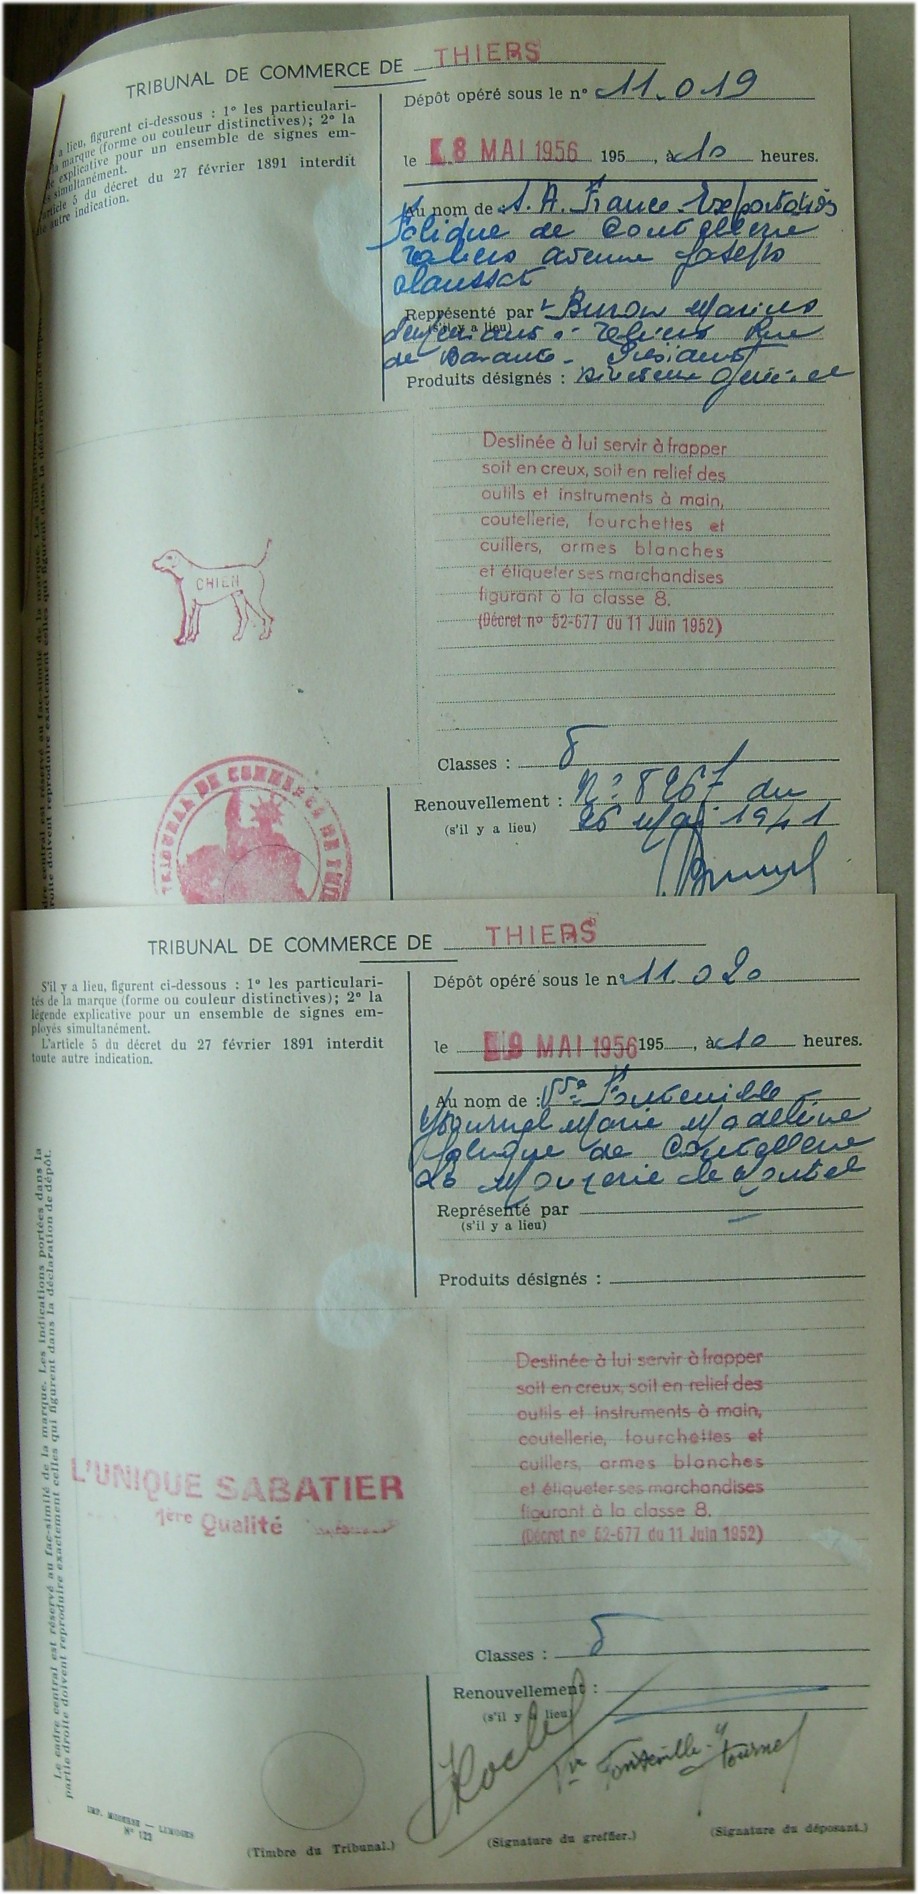 TRIBUNAL DE COMMERCE DE THIERS
a lieu, figurent ci-dessous : 1º les particulari-
marque (forme ou couleur distinctives); 2º la
explicative pour un ensemble de signes em-
simultanément.
5 du décret du 27 février 1891 interdit
autre indication.
Dépôt opéré sous le nº 11.019
le 8 MAI 1956 195 , à 10 heures.
Au nom de S. A. France Exportation
Fabrique de Coutellerie
Thiers avenue Joseph
Claussat
Représenté par
(s'il y a lieu)
Buron Marius
demeurant à Thiers Rue
de Barante - Président
Produits désignés : Directeur Général
Destinée à lui servir à frapper
soit en creux, soit en relief des
outils et instruments à main,
coutellerie, fourchettes et
cuillers, armes blanches
et étiqueter ses marchandises
figurant à la classe 8.
(Décret nº 52-677 du 11 Juin 1952)
CHIEN
Classes : 8
Renouvellement : Nº 8267 du
(s'il y a lieu) 26 Mai 1941
TRIBUNAL DE COMMERCE DE
TRIBUNAL DE COMMERCE DE THIERS
S'il y a lieu, figurent ci-dessous : 1º les particulari-
tés de la marque (forme ou couleur distinctives); 2º la
légende explicative pour un ensemble de signes em-
ployés simultanément.
L'article 5 du décret du 27 février 1891 interdit
toute autre indication.
Dépôt opéré sous le nº 11.020
le 9 MAI 1956 195 , à 10 heures.
Au nom de : Vve Fontenille
Tournel Marie Madeleine
fabrique de Coutellerie
La Monnerie le Montel
Représenté par
(s'il y a lieu)
Produits désignés :
Le cadre central est réservé au fac-similé de la marque. Les indications portées dans la
partie droite doivent reproduire exactement celles qui figurent dans la déclaration de dépôt.
L'UNIQUE SABATIER
1ère Qualité
Destinée à lui servir à frapper
soit en creux, soit en relief des
outils et instruments à main,
coutellerie, fourchettes et
cuillers, armes blanches
et étiqueter ses marchandises
figurant à la classe 8.
(Décret nº 52-677 du 11 Juin 1952)
Classes : 8
Renouvellement :
(s'il y a lieu)
Vve Fontenille Tournel
IMP. MODERNE — LIMOGES
Nº 123
(Timbre du Tribunal.)
(Signature du greffier.)
(Signature du déposant.)